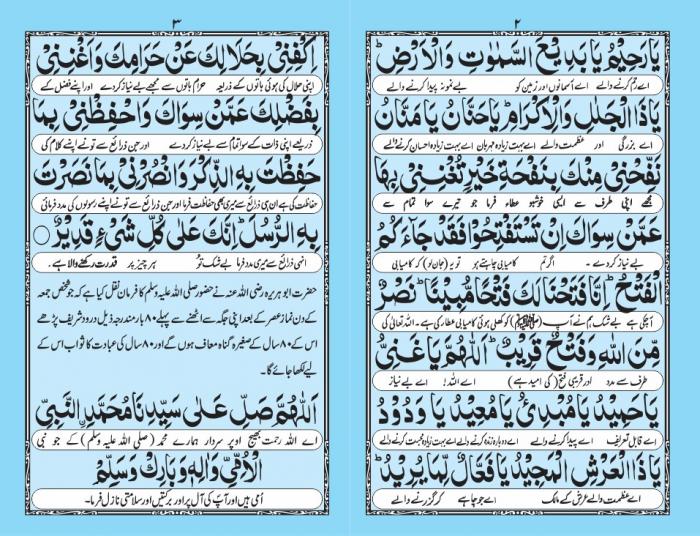 ٢
يَا رَحِيْمُ يَا بَدِيْعَ السَّمٰوٰتِ وَالْاَرْضِ ؕ
اے رحم کرنے والے اے آسمانوں اور زمین کو بے نمونہ پیدا کرنے والے
يَا ذَا الْجَلٰلِ وَالْاِكْرَامِ ؕ يَا حَنَّانُ يَا مَنَّانُ
اے بزرگی اور عظمت والے اے بہت زیادہ مہربان اے بہت زیادہ احسان کرنے والے
نَفِّحْنِىْ مِنْكَ بِنَفْحَةِ خَيْرٍ تُغْنِنِىْ بِهَا
مجھے اپنی طرف سے ایسی خوشبو عطاء فرما جو تیرے سوا تمام سے
عَمَّنْ سِوَاكَ اِنْ تَسْتَفْتِحُوْا فَقَدْ جَآءَكُمُ
بے نیاز کردے ۔ اگر تم کامیابی چاہتے ہو تو یہ (جان لو) کہ کامیابی
الْفَتْحُ ؕ اِنَّا فَتَحْنَا لَكَ فَتْحًا مُّبِيْنًا ؕ نَصْرٌ
آچکی ہے بے شک ہم نے آپ (ﷺ) کو کھلی ہوئی کامیابی عطا کی ہے ۔ اللہ تعالیٰ کی
مِّنَ اللّٰهِ وَفَتْحٌ قَرِيْبٌ ؕ اَللّٰهُمَّ يَا غَنِىُّ
طرف سے مدد اور قریبی فتح ( کی امید ہے) اے اللہ ! اے بے نیاز
يَا حَمِيْدُ يَا مُبْدِئُ يَا مُعِيْدُ يَا وَدُوْدُ
اے قابل تعریف اے پیدا کرنے والے اے دوبارہ زندہ کرنے والے اے بہت زیادہ محبت کرنے والے
يَا ذَا الْعَرْشِ الْمَجِيْدِ يَا فَعَّالٌ لِّمَا يُرِيْدُ ؕ
اے عظمت والے عرش کے مالک اے جو چاہے کر گزرنے والے
٣
اِكْفِنِىْ بِحَلَالِكَ عَنْ حَرَامِكَ وَاَغْنِنِىْ
اپنی حلال کی ہوئی باتوں کے ذریعہ حرام باتوں سے مجھے بے نیاز کردے اور اپنے فضل کے
بِفَضْلِكَ عَمَّنْ سِوَاكَ وَاحْفَظْنِىْ بِمَا
ذریعے اپنی ذات کے سوا تمام سے بے نیاز کردے اور جن ذرائع سے تو نے اپنے کلام کی
حَفِظْتَ بِهِ الذِّكْرَ وَانْصُرْنِىْ بِمَا نَصَرْتَ
حفاظت کی ہے ان ہی ذرائع سے میری بھی حفاظت فرما اور جن ذرائع سے تو نے اپنے رسولوں کی مدد فرمائی
بِهِ الرُّسُلَ ؕ اِنَّكَ عَلٰى كُلِّ شَىْءٍ قَدِيْرٌ ○
انہی ذرائع سے میری مدد فرما بے شک تو ہر چیز پر قدرت رکھنے والا ہے ۔
حضرت ابو ہریرہ رضی اللہ عنہ نے حضور صلی اللہ علیہ وسلم کا فرمان نقل کیا ہے کہ جو شخص جمعہ
کے دن نماز عصر کے بعد اپنی جگہ سے اٹھنے سے پہلے ٨٠ بار مندرجہ ذیل درود شریف پڑھے
اس کے ٨٠ سال کے صغیرہ گناہ معاف ہوں گے اور ٨٠ سال کی عبادت کا ثواب اس کے
لیے لکھا جائے گا۔
اَللّٰهُمَّ صَلِّ عَلٰى سَيِّدِنَا مُحَمَّدِ ࣙالنَّبِىِّ
اے اللہ رحمت بھیج اوپر سردار ہمارے محمد (صلی اللہ علیہ وسلم) کے جو نبی
الْاُمِّىِّ وَاٰلِهٖ وَبَارِكْ وَسَلِّمْ
امی ہیں اور آپ کی آل پر اور برکتیں اور سلامتی نازل فرما۔